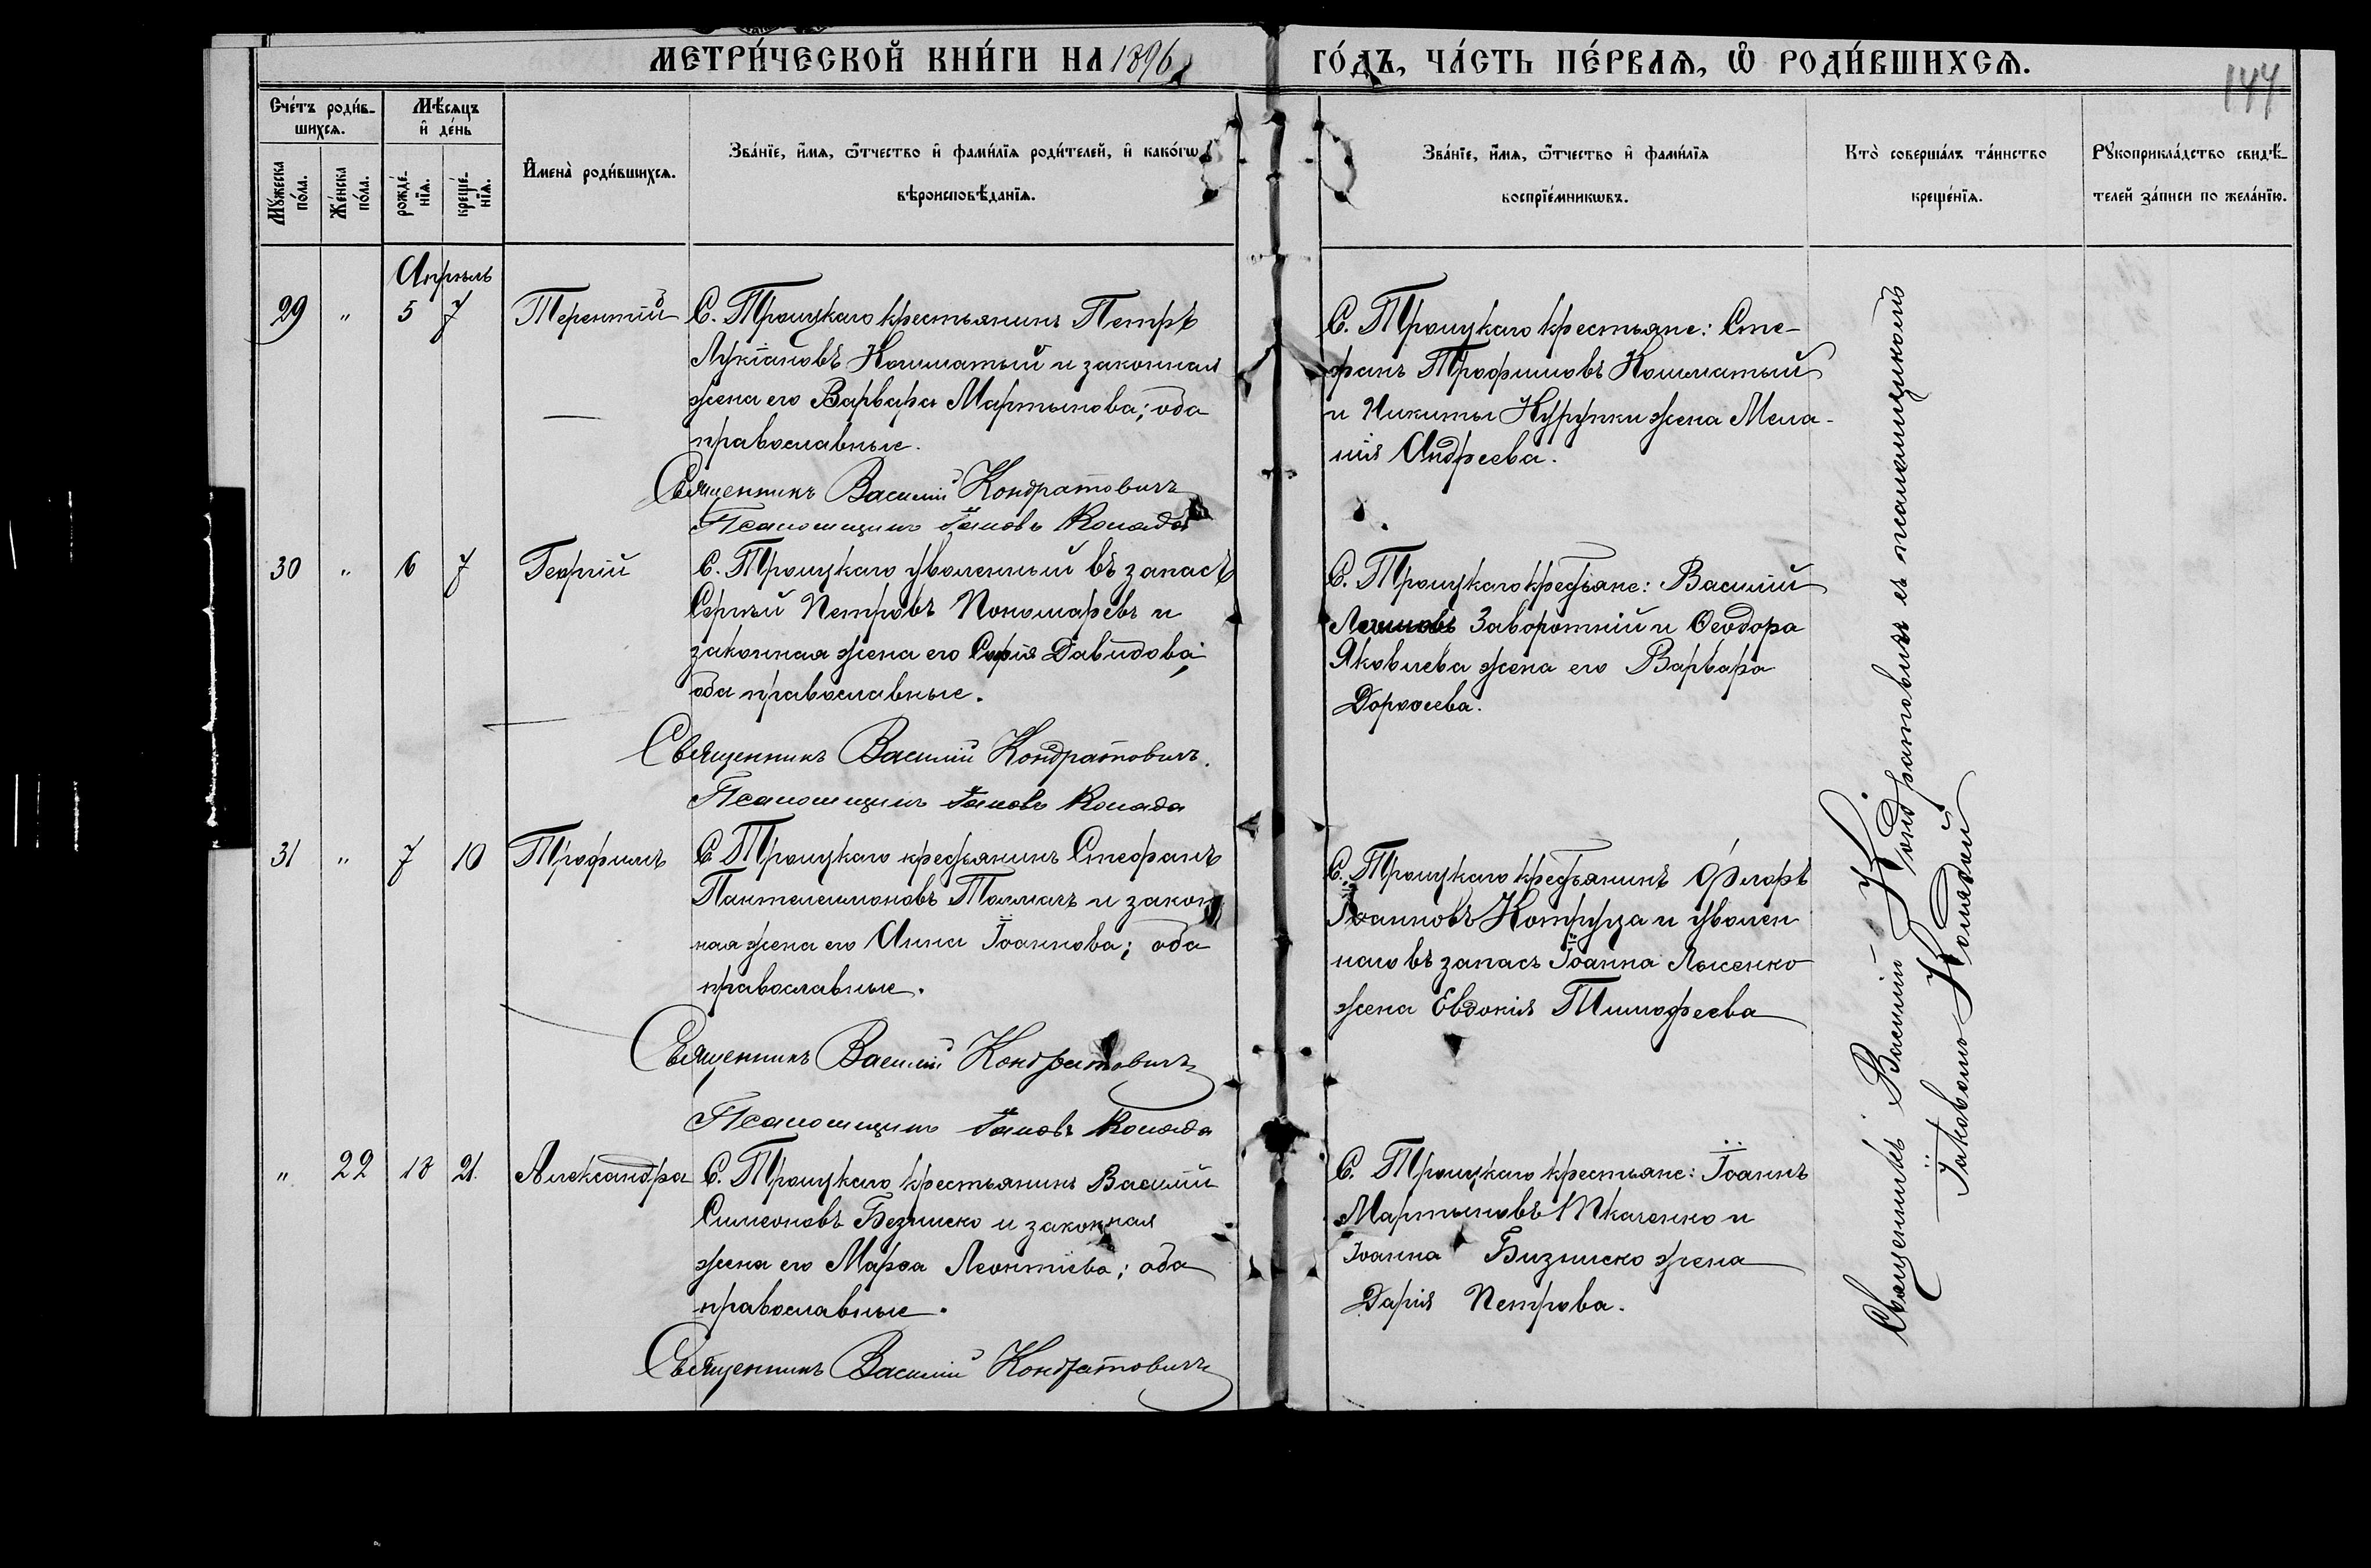 МЕТРИ́ЧЕСКОЙ КНИ́ГИ НА 1896 ГО́ДЪ, ЧА́СТЬ ПЕ́РВАѦ, Ѡ РОДИ́ВШИХСѦ.
144
Сче́тъ роди́в-
шихсѧ.
Мѣсѧцъ
и де́нь
Мꙋ́жеска
по́ла.
Же́нска
по́ла.
рожде́-
нїѧ.
креще́-
нїѧ.
Имена̀ роди́вшихсѧ.
Зва́нїе, и́мѧ, ѻ́тчество и фами́лїѧ роди́телей, и како́гѡ
вѣроисповѣ́данїѧ.
Зва́нїе, и́мѧ, ѻ́тчество и фами́лїѧ
воспрїе́мникѡвъ.
Кто̀ соверша́лъ та́инство
креще́нїѧ.
Рꙋкоприкла́дство свидѣ́-
телей за́писи по жела́нїю.
Апрѣль
29 " 5 7 Терентій
С. Троицкаго крестьянинъ Петръ
Лукіановъ Кошматый и законная
жена его Варвара Мартынова; оба
православные.
Священникъ Василій Кондратовичъ
Псаломщикъ Іаковъ Коляда
С. Троицкаго крестьяне: Сте-
фанъ Трофимовъ Кошматый
и Никиты жена Мела-
нія Андреева.
30 " 6 7 Георгій
С. Троицкаго уволенный въ запасъ
Сергѣй Петровъ Пономаревъ и
законная жена его Софія Давидова;
оба православные.
Священникъ Василій Кондратовичъ.
Псаломщикъ Іаковъ Коляда
С. Троицкаго крестьяне: Василій
Заворотній и Ѳеодора
Яковлева жена его Варвара
Дороѳеева.
31 " 7 10 Трофимъ
С. Троицкаго крестьянинъ Стефанъ
Пантелеимоновъ Толмачъ и закон
ная жена его Анна Іоаннова; оба
православные.
Священникъ Василій Кондратовичъ
Псаломщикъ Іаковъ Коляда
С. Троицкаго крестьянинъ Флоръ
Іоанновъ и уволен
наго въ запасъ Іоанна Лысенко
жена Евдокія Тимофеева
" 22 18 21. Александра
С. Троицкаго крестьянинъ Василій
Симеоновъ и законная
жена его Марѳа Леонтіева; оба
православные.
Священникъ Василій Кондратовичъ
С. Троицкаго крестьяне: Іоаннъ
Мартыновъ Ткаченко и
Іоанна жена
Дарія Петрова.
Священникъ Василій Кондратовичъ съ псаломщикомъ
Іаковомъ Колядой